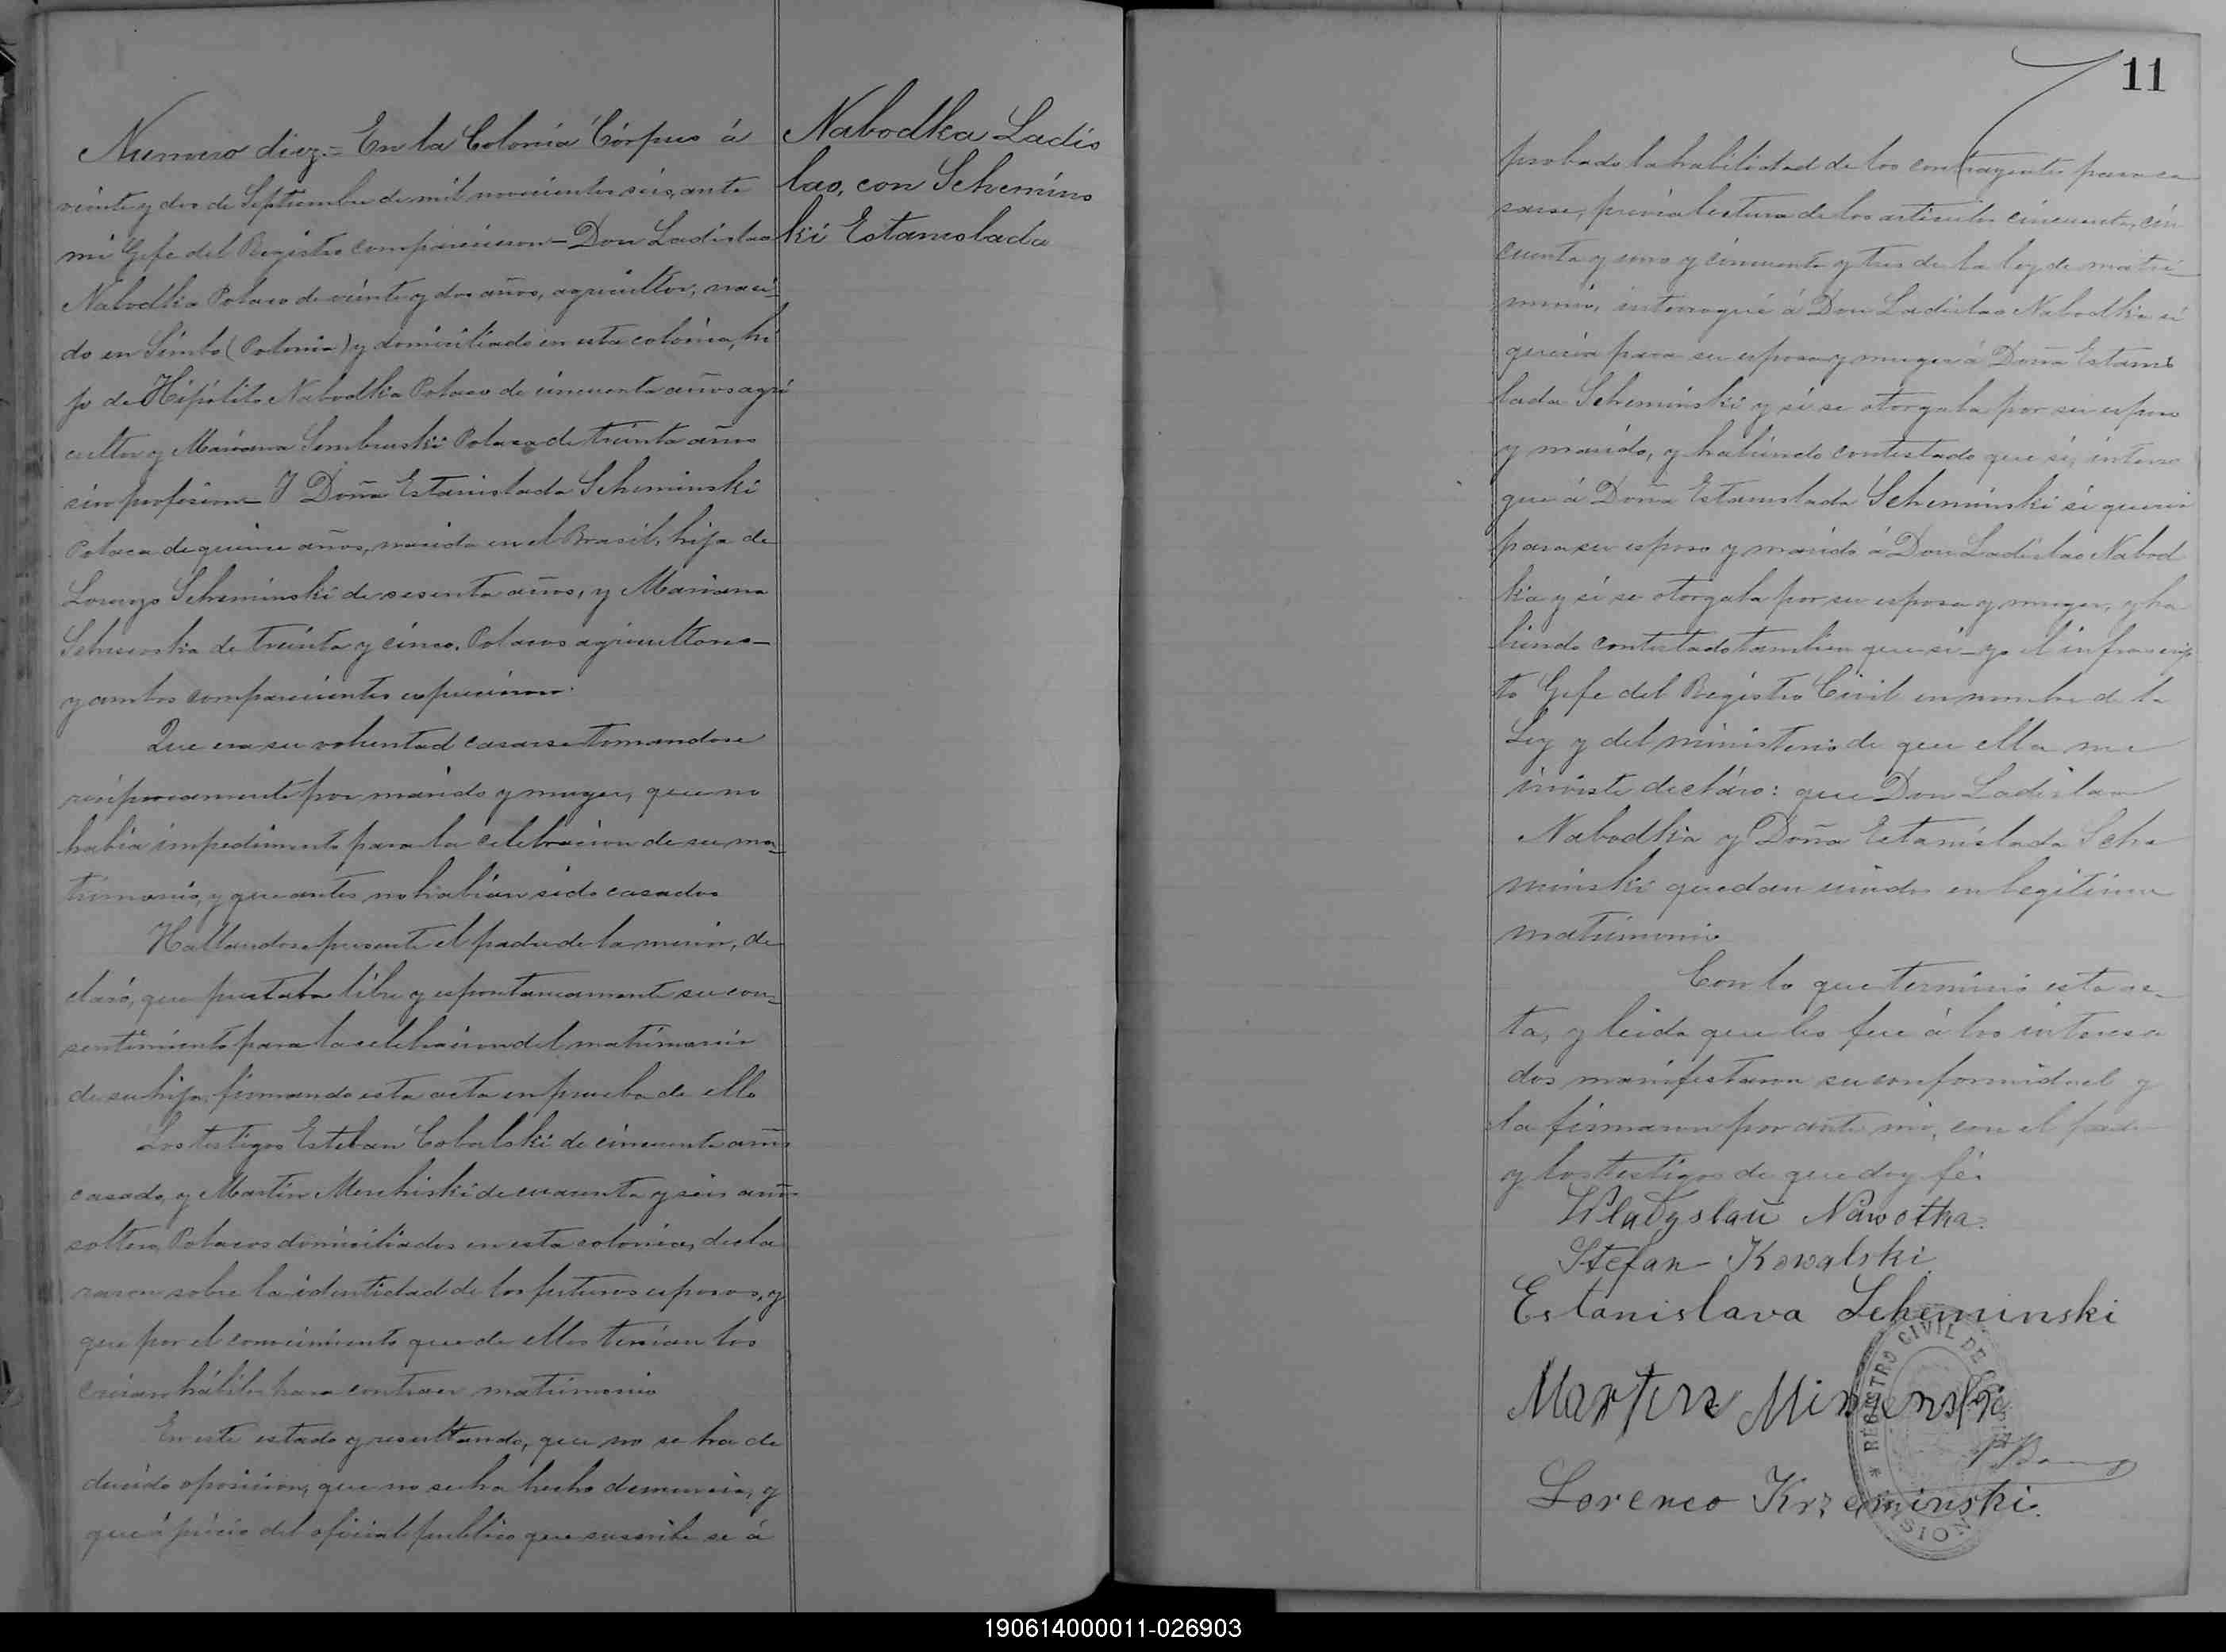 Numero diez.= En la Colonia Córpus á
veinte y dos de Septiembre de mil novecientos seis, ante
mi Gefe del Registro comparecieron - Don Ladislao
Nabodka Polaco de veinte y dos años, agricultor, naci-
do en Simbo (Polonia) y domiciliado en esta colonia, hi
jo de Hipólito Nabodka Polaco de cincuenta años agri
cultor y Mariana Sembruski Polaca de treinta años
sin profesion - Y Doña Estanislada Scheminski
Polaca de quince años, nacida en el Brasil, hija de
Lorenzo Scheminski de sesenta años, y Mariana
de treinta y cinco, Polacos agricultores -
y ambos comparecientes espusieron:
Que era su voluntad casarse tomandose
reciprocamente por marido y muger, que no
habia impedimento para la celebracion de su ma-
trimonio, y que antes no habian sido casados
Hallandose presente el padre de la menor, de
claró, que prestaba libre y espontaneamente su con-
sentimiento para la celebracion del matrimonio
de su hija, firmando esta acta en prueba de ello
Los testigos Esteban Cobalski de cincuenta años
casado, y Martin Menchiski de cuarenta y seis años
soltero, Polacos domiciliados en esta colonia, decla
raron sobre la identidad de los futuros esposos, y
que por el conocimiento que de ellos tenian los
creian hábiles para contraer matrimonio
En este estado y resultando, que no se ha de
ducido oposicion, que no se ha hecho denuncia, y
que á juicio del oficial publico que suscribe se á
Nabodka Ladis
lao, con Schemins
ki Estanislada
11
probado la habilidad de los contrayentes para ca
sarse, prévia lectura de los articulos cincuenta, cin
cuenta y uno y cincuenta y tres de la ley de matri
monio, interrogué á Don Ladislao Nabodka si
queria para su esposa y muger á Doña Estanis
lada Scheminski y si se otorgaba por su esposo
y marido, y habiendo contestado que si, interro
gue á Doña Estanislada Scheminski si queria
para su esposo y marido á Don Ladislao Nabod
ka y si se otorgaba por su esposa y muger, y ha
biendo contestado tambien que si - yo el infrascrip
to Gefe del Registro Civil en nombre de la
Ley y del ministerio de que ella me
inviste decláro: que Don Ladislao
Nabodka y Doña Estanislada Sche
minski quedan unidos en legitimo
matrimonio
Con lo que terminó esta ac-
ta, y leida que les fue á los interesa
dos manifestaron su conformidad y
la firmaron por ante mi, con el padre
y los testigos de que doy fé.
Wladyslaŭ Nawotka.
Stefan Kowalski
Estanislava Scheminski
Martin
Lorenco Krzeminski.
* REGISTRO CIVIL DE
190614000011-026903